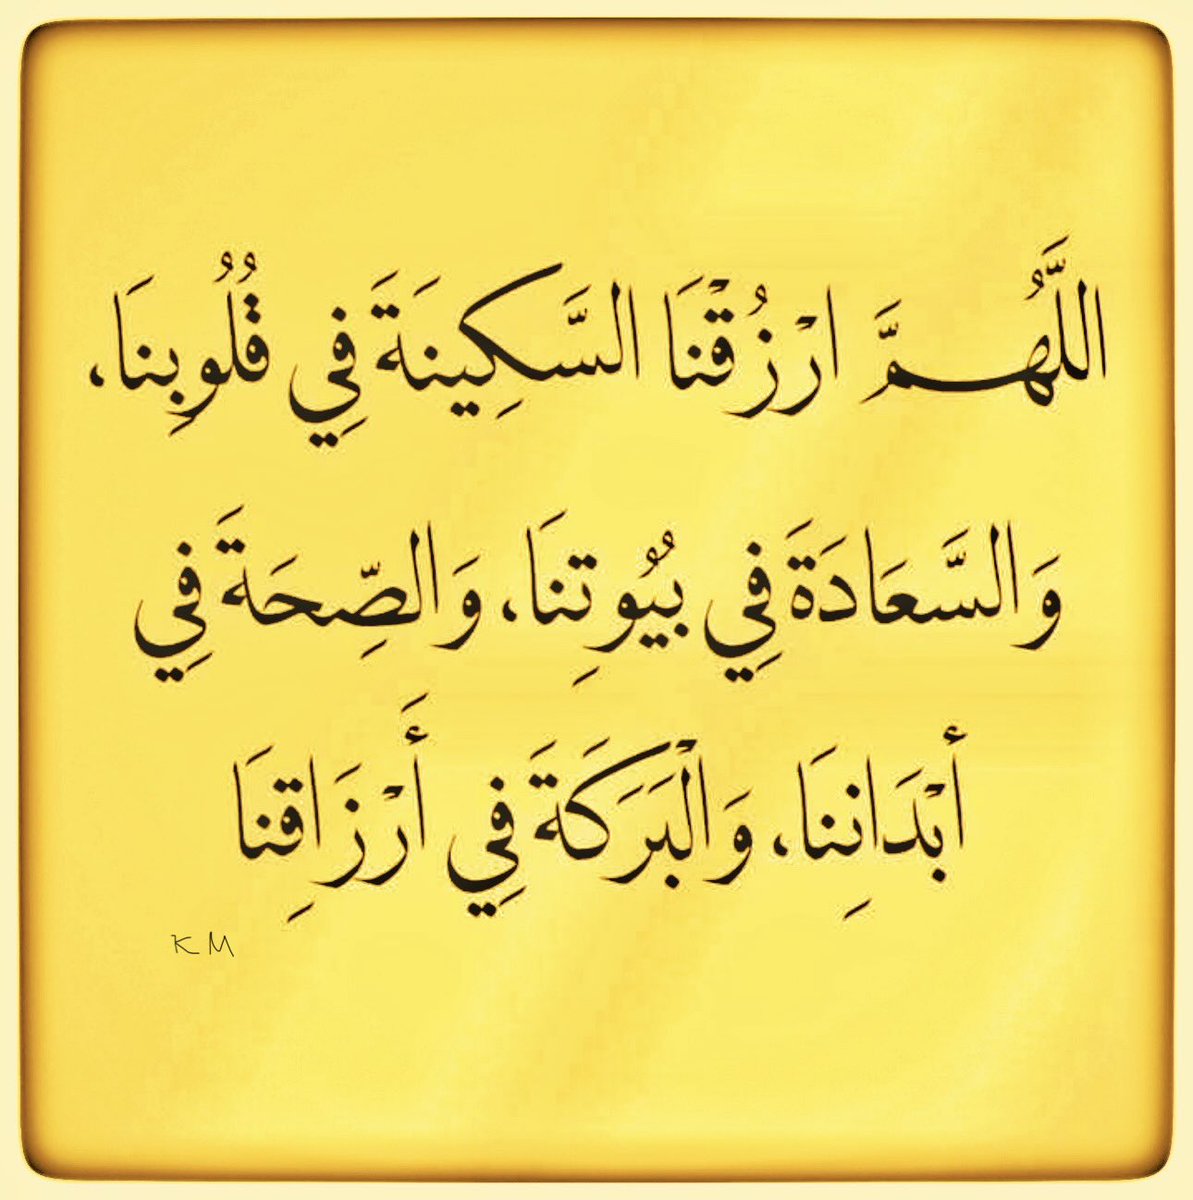 اللَّهُمَّ ارْزُقْنَا السَّكِينَةَ فِي قُلُوبِنَا،
وَالسَّعَادَةَ فِي بُيُوتِنَا، وَالصِّحَةَ فِي
أَبْدَانِنَا، وَالْبَرَكَةَ فِي أَرْزَاقِنَا
K M